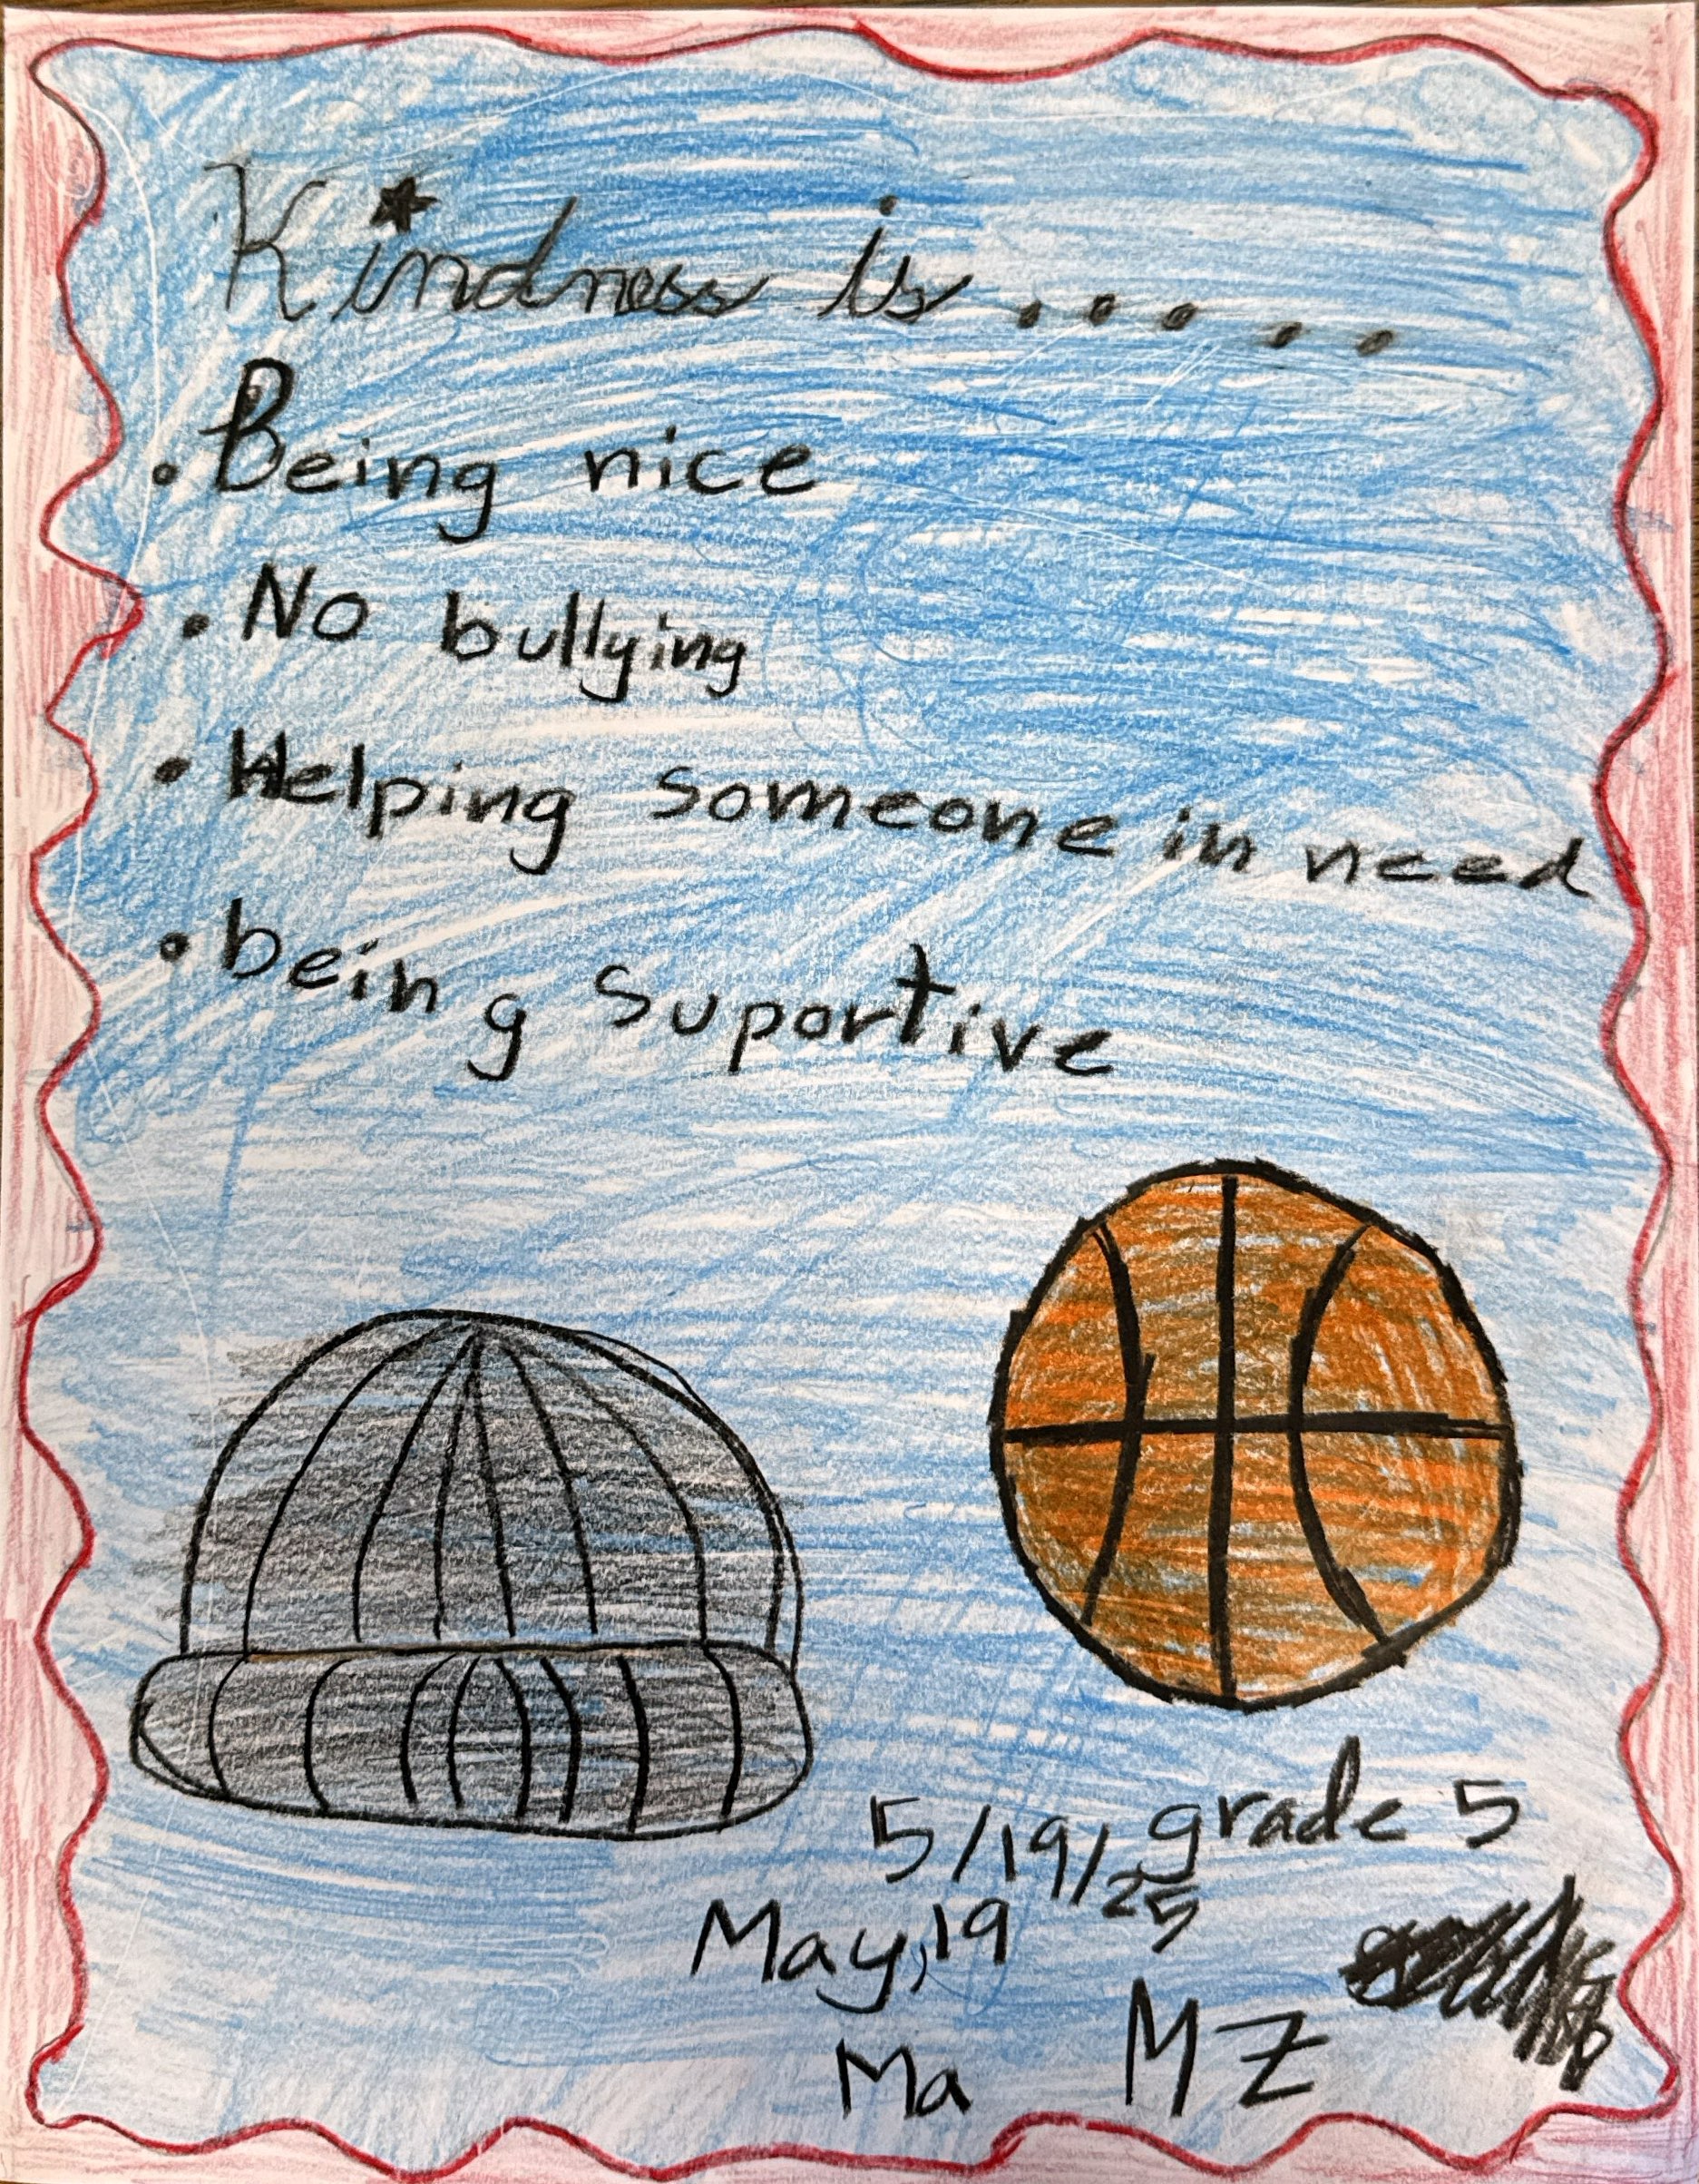 Kindness is.....
• Being nice
• No bullying
• Helping someone in need
• being Suportive
grade 5
5/19/25
May,19
MZ
Ma